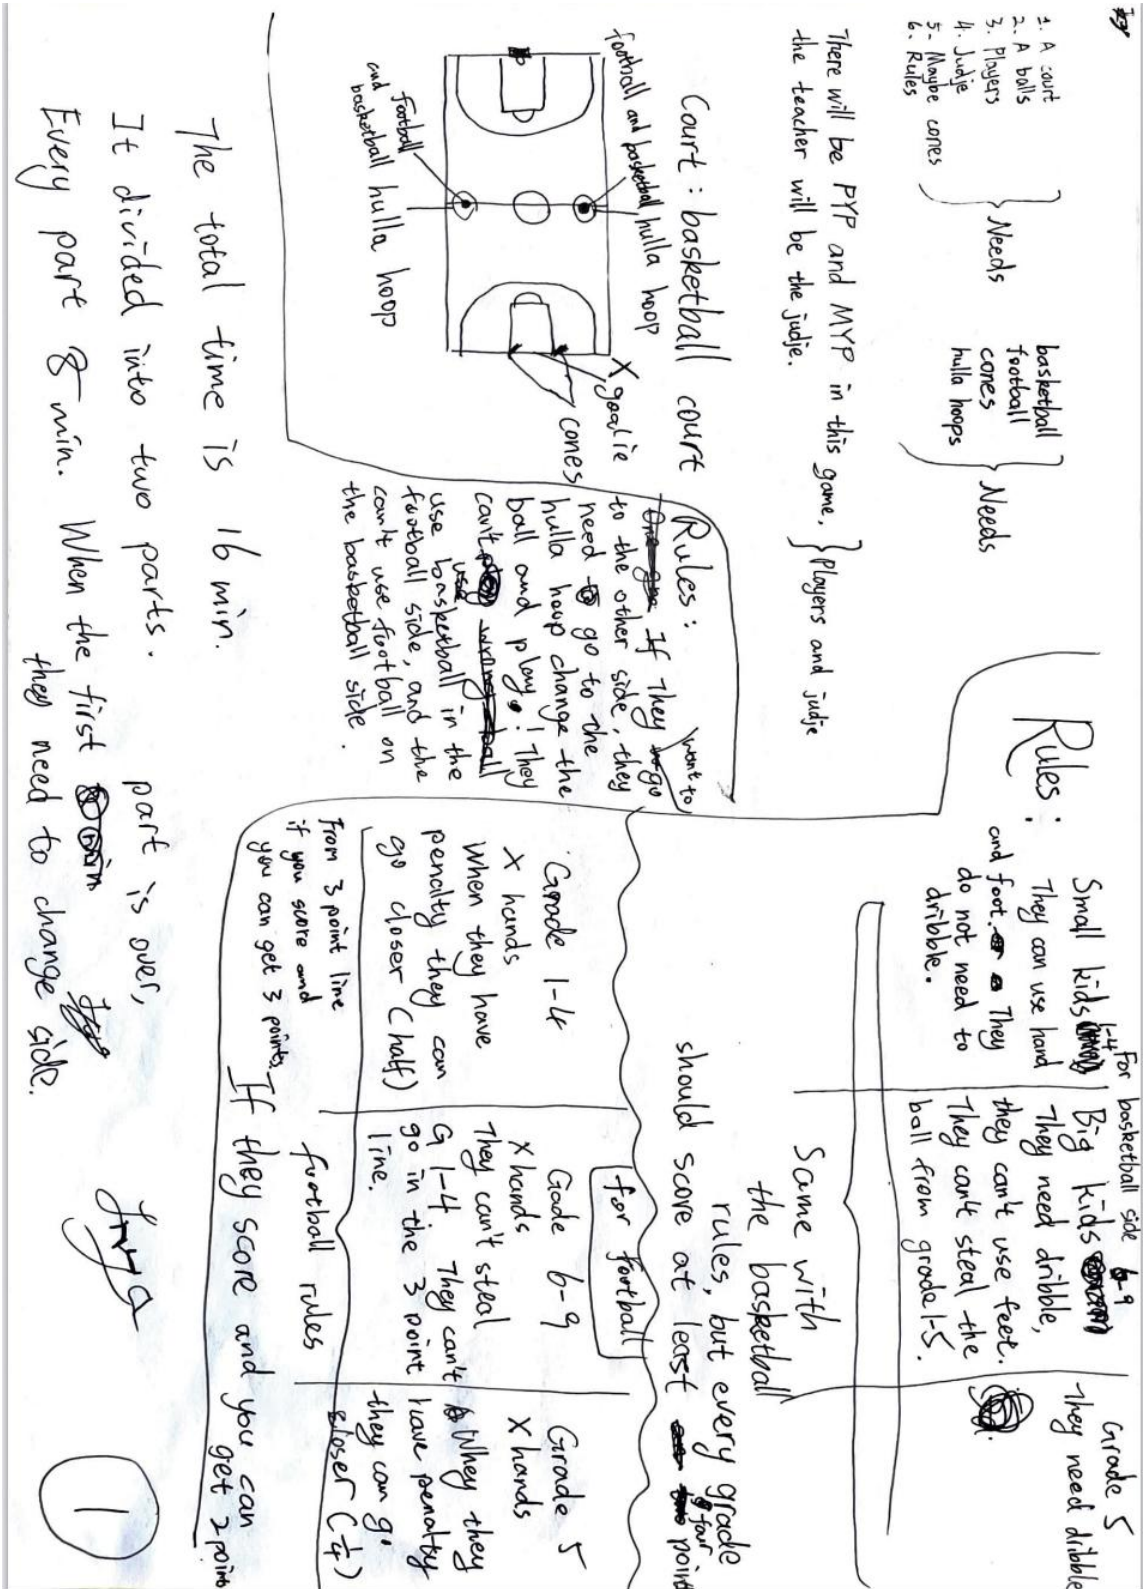 1. A court
2. A balls
3. Players
4. Judje
5. Maybe cones
6. Rules
Needs
basketball
football
cones
hulla hoops
Needs
There will be PYP and MYP in this game,
the teacher will be the judje.
Players and judje
Court : basketball court
football and basketball hulla hoop
football
and
basketball hulla hoop
X goalie
cones
Rules :
If They want to go
to the other side, they
need to go to the
hulla hoop change the
ball and play! They
can't
use basketball in the
football side, and the
can't use football on
the basketball side.
Rules :
For basketball side
Small kids 1-4
They can use hand
and foot. They
do not need to
dribble.
Big kids 6-9
They need dribble,
they can't use feet.
They can't steal the
ball from grade 1-5.
Grade 5
They need dribble
Same with
the basketball
rules, but every grade
should score at least four point
for football
Grade 1-4
X hands
When they have
penalty they can
go closer (half)
Gade 6-9
X hands
They can't steal
G 1-4. They can't
go in the 3 point
line.
Grade 5
X hands
Whey they
have penalty
they can go
closer (1/4)
From 3 point line
if you score and
you can get 3 points.
football rules
If they score and you can
get 2 point
The total time is 16 min.
It divided into two parts.
Every part 8 min. When the first part is over,
they need to change side.
1